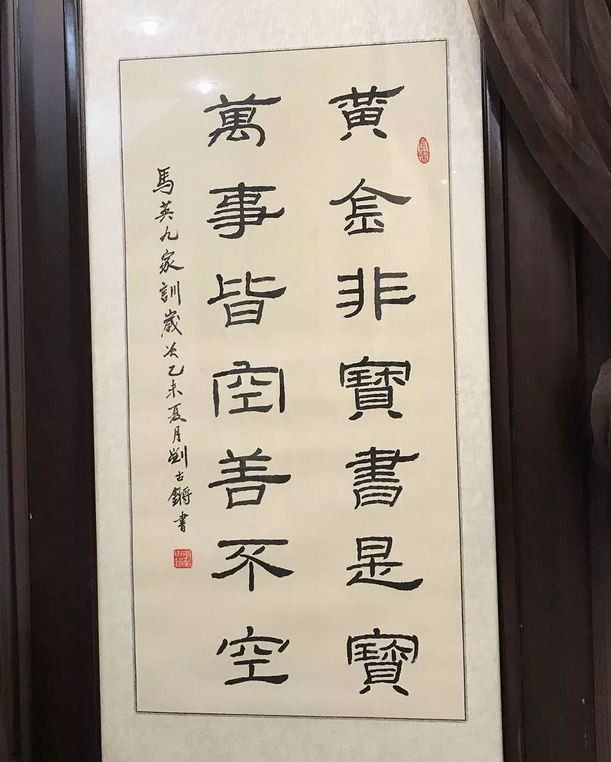 黃金非寶書是寶
萬事皆空善不空
馬英九家訓歲次乙未夏月劉古鏘書